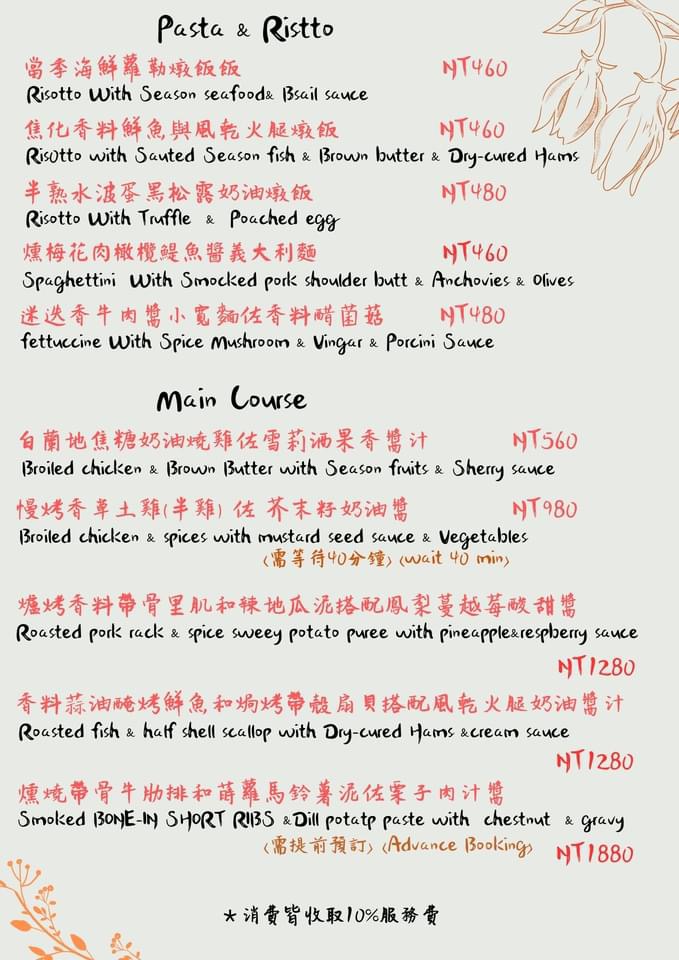 Pasta & Ristto
當季海鮮蘿勒燉飯飯 NT460
Risotto With Season seafood& Bsail sauce
焦化香料鮮魚與風乾火腿燉飯 NT460
Risotto with Sauted Season fish & Brown butter & Dry-cured Hams
半熟水波蛋黑松露奶油燉飯 NT480
Risotto With Truffle & Poached egg
燻梅花肉橄欖鯷魚醬義大利麵 NT460
Spaghettini With Smocked pork shoulder butt & Anchovies & Olives
迷迭香牛肉醬小寬麵佐香料醋菌菇 NT480
fettuccine With Spice Mushroom & Vingar & Porcini Sauce
Main Course
白蘭地焦糖奶油燒雞佐雪莉酒果香醬汁 NT560
Broiled chicken & Brown Butter with Season fruits & Sherry sauce
慢烤香草土雞(半雞) 佐 芥末籽奶油醬 NT980
Broiled chicken & spices with mustard seed sauce & Vegetables
(需等待40分鐘) (wait 40 min)
爐烤香料帶骨里肌和辣地瓜泥搭配鳳梨蔓越莓酸甜醬
Roasted pork rack & spice sweey potato puree with pineapple&respberry sauce
NT1280
香料蒜油醃烤鮮魚和焗烤帶殼扇貝搭配風乾火腿奶油醬汁
Roasted fish & half shell scallop with Dry-cured Hams &cream sauce
NT1280
燻燒帶骨牛肋排和蒔蘿馬鈴薯泥佐栗子肉汁醬
Smoked BONE-IN SHORT RIBS &Dill potatp paste with chestnut & gravy
(需提前預訂) (Advance Booking) NT1880
★消費皆收取10%服務費